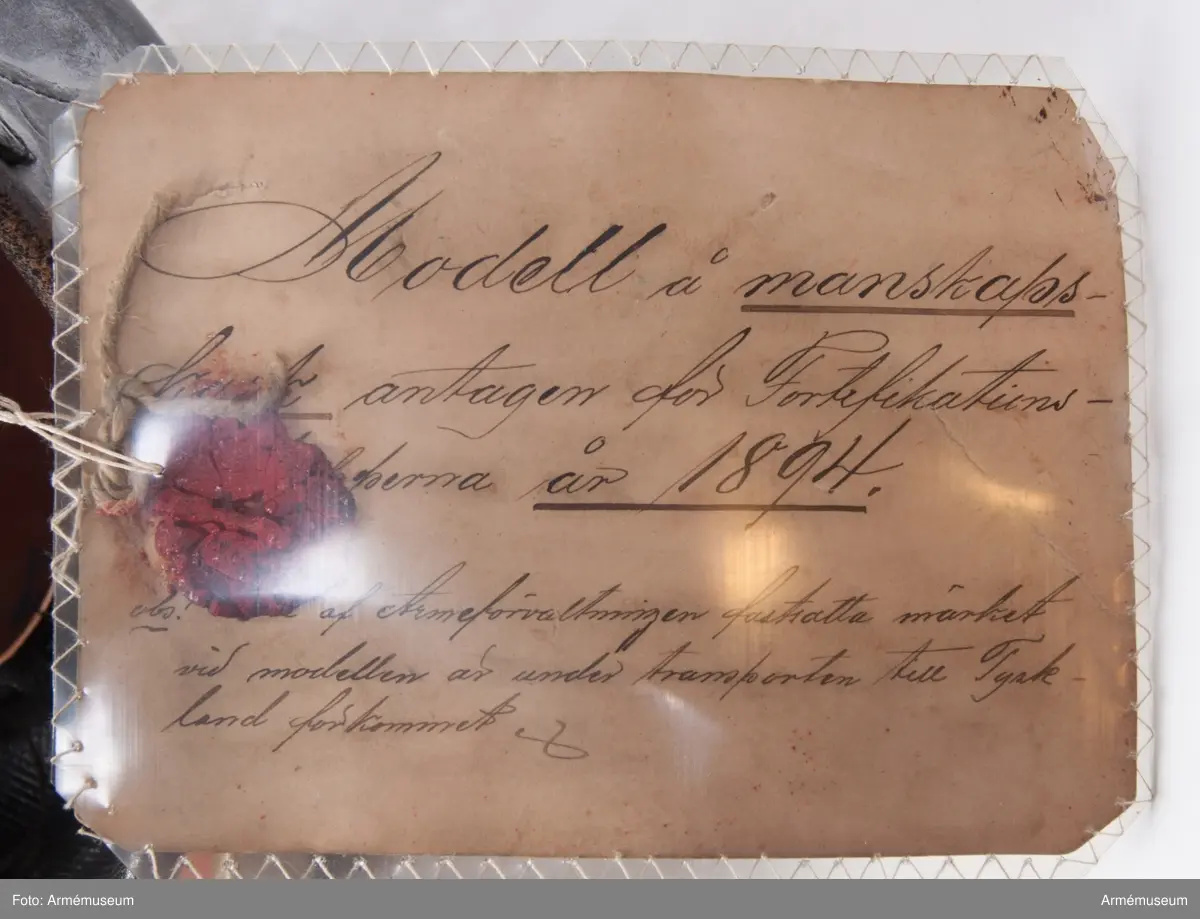 Modell å manskaps-
antagen för Fortefikations-
år 1894.
obs! af Armeförvaltningen fastsatta märket
vid modellen är under transporten till Tysk-
land förkommet
Foto: Armémuseum
Armémuseum